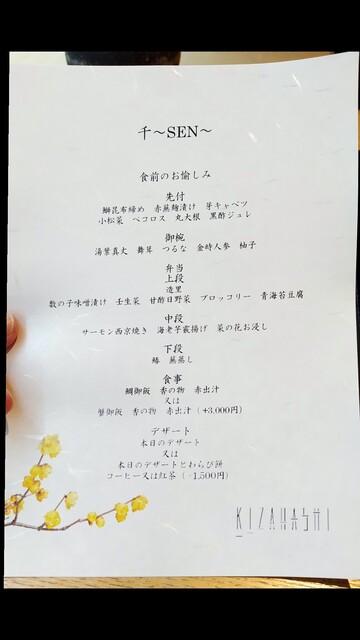 千～SEN～
食前のお愉しみ
先付
鰤昆布締め 赤蕪麹漬け 芽キャベツ
小松菜 ペコロス 丸大根 黒酢ジュレ
御椀
湯葉真丈 舞茸 つるな 金時人参 柚子
弁当
上段
造里
数の子味噌漬け 壬生菜 甘酢日野菜 ブロッコリー 青海苔豆腐
中段
サーモン西京焼き 海老芋霰揚げ 菜の花お浸し
下段
鰆 蕪蒸し
食事
鯛御飯 香の物 赤出汁
又は
蟹御飯 香の物 赤出汁（+3,000円）
デザート
本日のデザート
又は
本日のデザートとわらび餅
コーヒー又は紅茶（ 1,500円）
KIZAHASHI